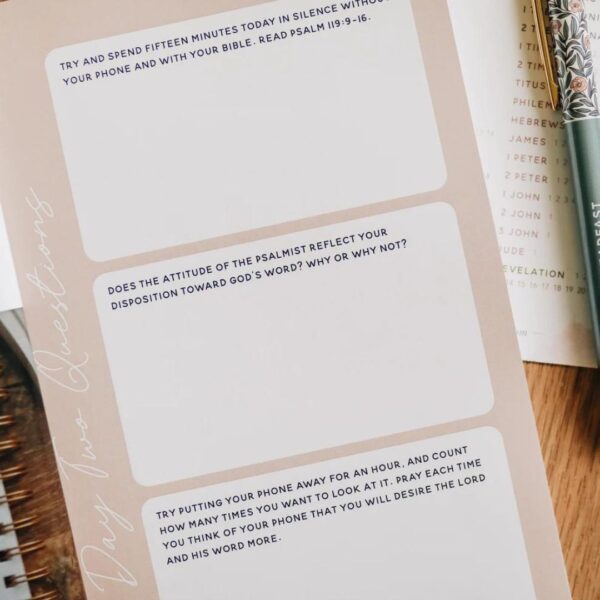 TRY AND SPEND FIFTEEN MINUTES TODAY IN SILENCE WITHOUT
YOUR PHONE AND WITH YOUR BIBLE. READ PSALM 119:9-16.
DOES THE ATTITUDE OF THE PSALMIST REFLECT YOUR
DISPOSITION TOWARD GOD'S WORD? WHY OR WHY NOT?
TRY PUTTING YOUR PHONE AWAY FOR AN HOUR, AND COUNT
HOW MANY TIMES YOU WANT TO LOOK AT IT. PRAY EACH TIME
YOU THINK OF YOUR PHONE THAT YOU WILL DESIRE THE LORD
AND HIS WORD MORE.
Day Two Questions
1 TIM
2 TIME
TITUS
PHILEM
HEBREWS
JAMES 1
1 PETER 1
2 PETER 1
1 JOHN 1 2 3
2 JOHN 1
3 JOHN 1
JUDE 1
REVELATION 1 2
14 15 16 17 18 19 20